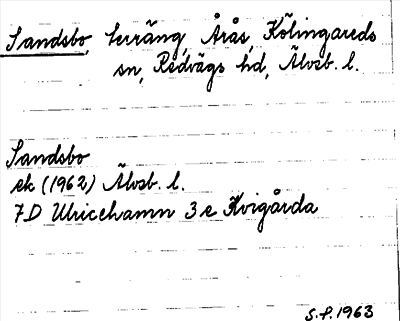 Sandsbo, terräng, Årås, Kölingareds
sn, Redvägs hd, Älvsb. l.
Sandsbo
ek (1962) Älvsb. l.
7D Ulricehamn 3e Kvigårda
S.f. 1963